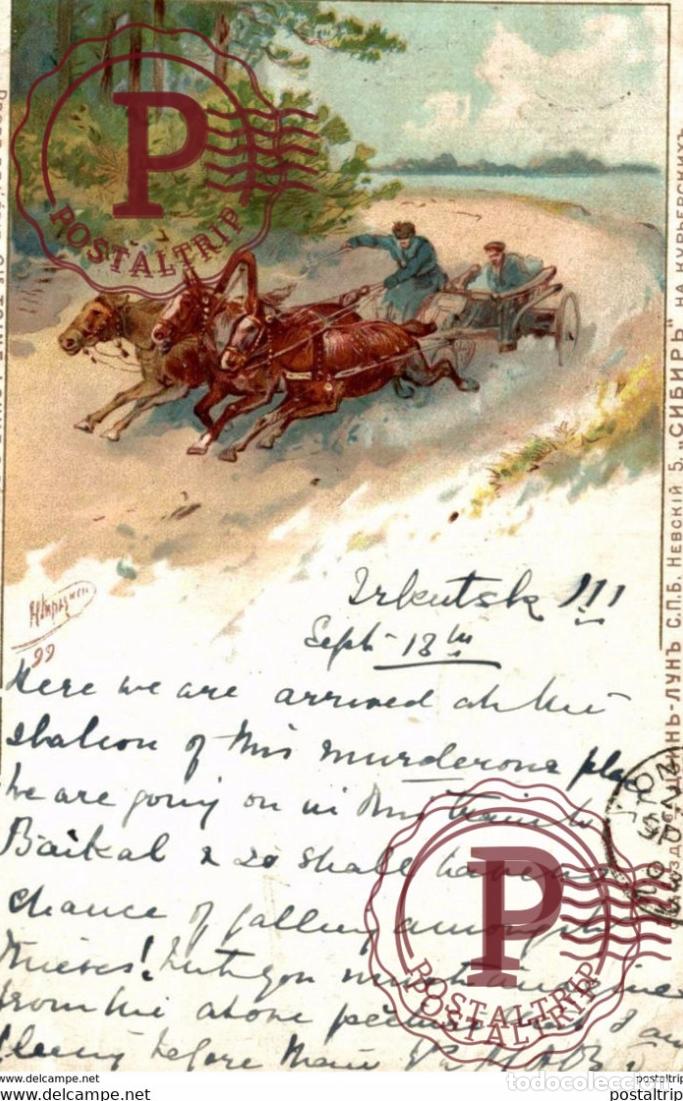 POSTALTRIP
99
Irkutsk !!!
Sept 18th
Here we are arrived at the
station of this murderous
We are going on in this train to
Baikal & so shall have no
chance of falling among the
thieves! but you must imagine
from the above picture that I am
fleeing before them
"СИБИРЬ" НА КУРЬЕРСКИХЪ
НЕВСКІЙ 5.
С.П.Б.
POSTALTRIP
www.delcampe.net
postaltrip
todocoleccion
www.delcampe.net
postaltrip